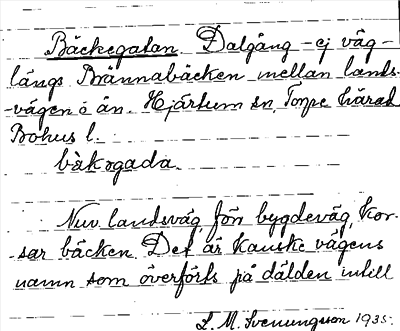 Bäckegatan. Dalgång - ej väg -
längs Brännabäcken mellan lands-
-vägen o ån. Hjärtum sn, Torpe härad
Bohus l.
bäkogada.
Nuv. landsväg, förr bygdeväg, kor-
-sar bäcken. Det är kanske vägens
namn som överförts på dälden intill
S. M. Svenungsson 1935.